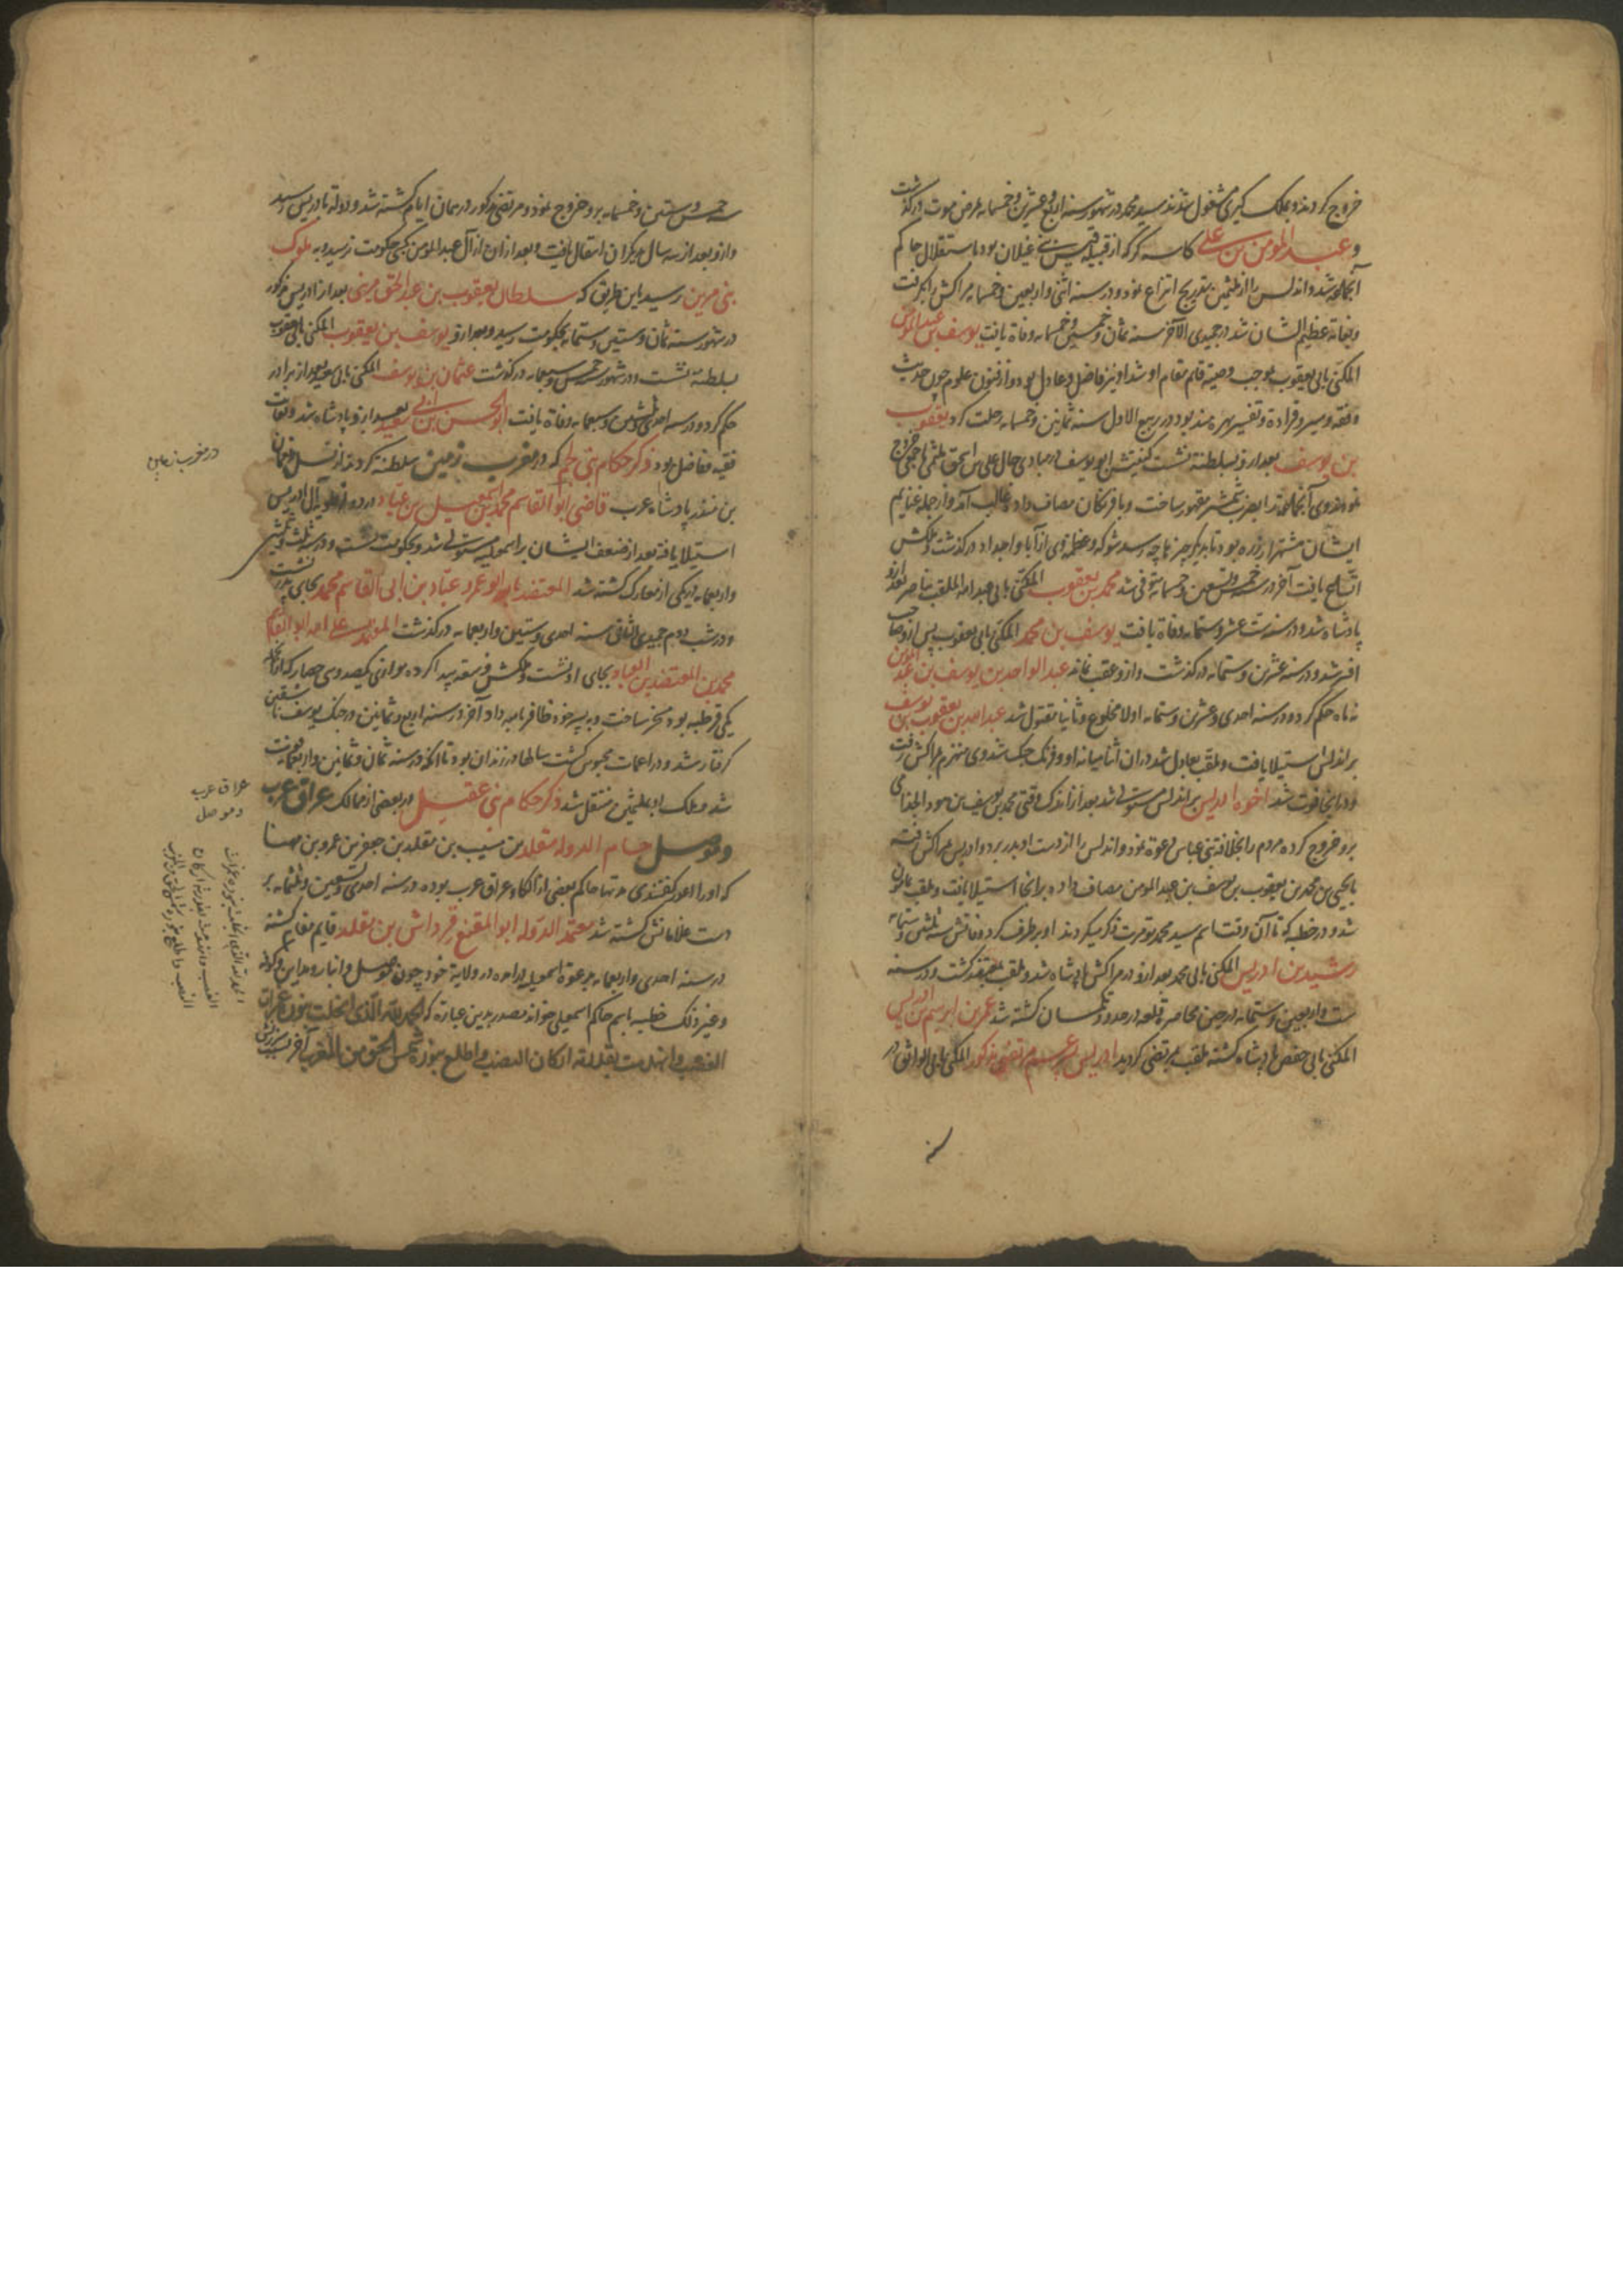 خروج کردند و بملک کیری مشغول شدند سید محمد در شهور سنه اربع و عشرین و خمسمایه بمرض موت درکذشت
و عبد المومن بن علی کاسه کر که از قبیله قیس بن غیلان بود باستقلال حاکم
آنجا شد و اندلس را از ملثمین بتدریج انتزاع نمود و در سنه اثنی و اربعین و خمسمایه مراکش را بکرفت
و بغایة عظیم الشان شد در جمیدی الآخر سنه ثمان و خمسین و خمسمایه وفاة یافت یوسف بن عبد المومن
المکنی بابی یعقوب بموجب وصیة قایم مقام او شد او نیز فاضل و عادل بود و از فنون علوم چون حدیث
و فقه و سیر و قراءة و تفسیر بهره مند بود در ربیع الاول سنه ثمانین و خمسمایه رحلت کرد یعقوب
بن یوسف بعد ازو بسلطنة نشست کنیتش ابو یوسف در مبادی حال علی بن اسحق ملثمی با جمعی خروج
نمودند وی بضرب شمشیر مقهور ساخت و با فرنکان مصاف داده غالب آمد و از جمله غنایم
ایشان هزار زره بود تا بدیکر چیزها چه رسد شوکة و عظمة وی از آبا و اجداد درکذشت و ملکش
اتساع یافت آخر در خمس و تسعین و خمسمایة متوفی شد محمد بن یعقوب المکنی بابی عبد الله الملقب بناصر بعد ازو
پادشاه شد و در سنه ست عشر و ستمایه وفاة یافت یوسف بن محمد المکنی بابی یعقوب پس ازو صاحب
افسر شد و در سنه عشرین و ستمایه درکذشت و ازو عقب نماند عبد الواحد بن یوسف بن عبد المومن
نه ماه حکم کرد و در سنه احدی و عشرین و ستمایه اولا مخلوع و ثانیا مقتول شد عبد الله بن یعقوب بن یوسف
بر اندلس استیلا یافت و ملقب بعادل شد در ان اثنا میانه او و فرنک جنک شد وی منهزم بمراکش رفت
و در انجا فوت شد اخوه ادریس بر اندلس مستولی شد بعد از اندک وقتی محمد بن یوسف بن هود الجذامی
برو خروج کرده مردم را بخلافت بنی عباس دعوة نمود و اندلس را از دست او بدر برد و ادریس بمراکش رفته
با یحیی بن محمد بن یعقوب بن یوسف بن عبد المومن مصاف داده بر انجا استیلا یافت و ملقب بمامون
شد و در خطبه که تا آن وقت اسم سید محمد تومرت ذکر میکردند او بر طرف کرد وفاتش سنه ثلثین و ستمایه
رشید بن ادریس المکنی بابی محمد بعد ازو در مراکش پادشاه شد و ملقب کشت و در سنه
ست و اربعین و ستمایه در حین محاصره قلعه در حدود تلمسان کشته شد عمر بن ابرهیم بن ادریس
المکنی بابی حفص پادشاه کشته ملقب بمرتضی کردید ادریس مرتضی مذکور المکنی بابی الواثق در
سنه
خمس و ستین و خمسمایه برو خروج نمود و مرتضی مذکور در همان ایام کشته شد و دولة بادریس رسید
و ازو بعد از سه سال بدیکران انتقال یافت و بعد از ان از آل عبد المومن کسی بحکومت نرسید و به ملوک
بنی مرین رسید باین طریق که سلطان یعقوب بن عبد الحق مرینی بعد از ادریس مذکور
در شهور سنه ثمان و ستین و ستمایه بحکومت رسید و بعد ازو یوسف بن یعقوب المکنی بابی یعقوب
بسلطنة نشست و در شهور خمس و سبعمایه درکذشت عثمان بن یوسف المکنی بابی سعید بعد از برادر
حکم کرد و در سنه احدی و ثلثین و سبعمایه وفاة یافت ابو الحسن بن ابی سعید بعد ازو پادشاه شد و بغایت
فقیه و فاضل بود ذکر حکام بنی لخم که در مغرب زمین سلطنة کردند از نسل نعمان
بن منذر پادشاه عرب قاضی ابو القاسم محمد بن اسمعیل بن عباد آل ادریس
استیلا یافته بعد از ضعف ایشان بر اشبیلیه مستولی شد و بحکومت نشست و در سنه ثلث و ثلثین
و اربعمایه در یکی از معارک کشته شد المعتضد بالله ابو عمرو عباد بن ابی القاسم محمد بجای پدر نشست
و در شب دوم جمیدی الثانی سنه احدی و ستین و اربعمایه درکذشت المعتمد علی الله ابو القاسم
محمد بن المعتضد بن العباد بجای او نشست و ملکش فسعة پیدا کرده موازی یکصد و سی حصار که از انجمله
یکی قرطبه بود مسخر ساخت و به پسر خود ظافر نامه داد آخر در سنه اربع و ثمانین در جنک یوسف تاشفین
کرفتار شد و در اغمات محبوس کشت سالها در زندان بود تا انکه در سنه ثمان و ثمانین و اربعمایه فوت
شد و ملک او بملثمین منتقل شد ذکر حکام بنی عقیل در بعضی از ممالک عراق عرب
و موصل حسام الدوله مقلد بن مسیب بن مقلد بن جعفر بن عمرو بن مهنا
که او را اعور کفتندی مدتها حاکم بعضی از الکاء عراق عرب بوده در سنه احدی و تسعین و ثلثمایه بر
دست غلامانش کشته شد معتمد الدوله ابو المقنع قرواش بن مقلد قایم مقام کشته
در سنه احدی و اربعمایه بدعوة اسمعیلیه درامده در ولایة خود چون موصل و انبار و مداین و کوفه
و غیر ذلک خطبه باسم حاکم اسمعیلی خواند مصدر بدین عبارة که الحمد لله الذی انجلت بنوره غمرات
الغضب و انهدت بقدرته ارکان النصب و اطلع بنوره شمس الحق من المغرب آخر
در مغرب زمین
عراق عرب
و موصل
الحمد لله الذی انجلت بنوره غمرات
الغضب و انهدت بقدرته ارکان
النصب و اطلع بنوره شمس الحق من المغرب